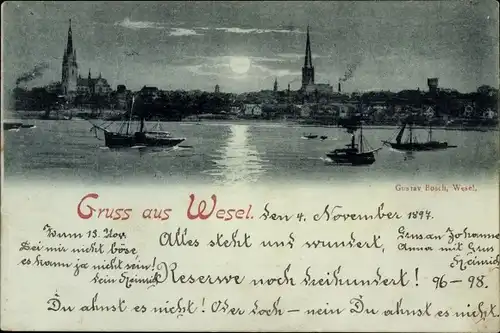 Gustav Bosch, Wesel.
Gruss aus Wesel. den 4. November 1897.
Wenn 13. Nov.
Sei mir nicht böse
es kann ja nicht sein!
Dein Heinrich
Alles steht und wundert,
Gruss an Johanne
Anna mit Gruss
Heinrich
Reserve noch dreihundert! 96-98.
Du ahnst es nicht! Oder doch - nein Du ahnst es nicht!